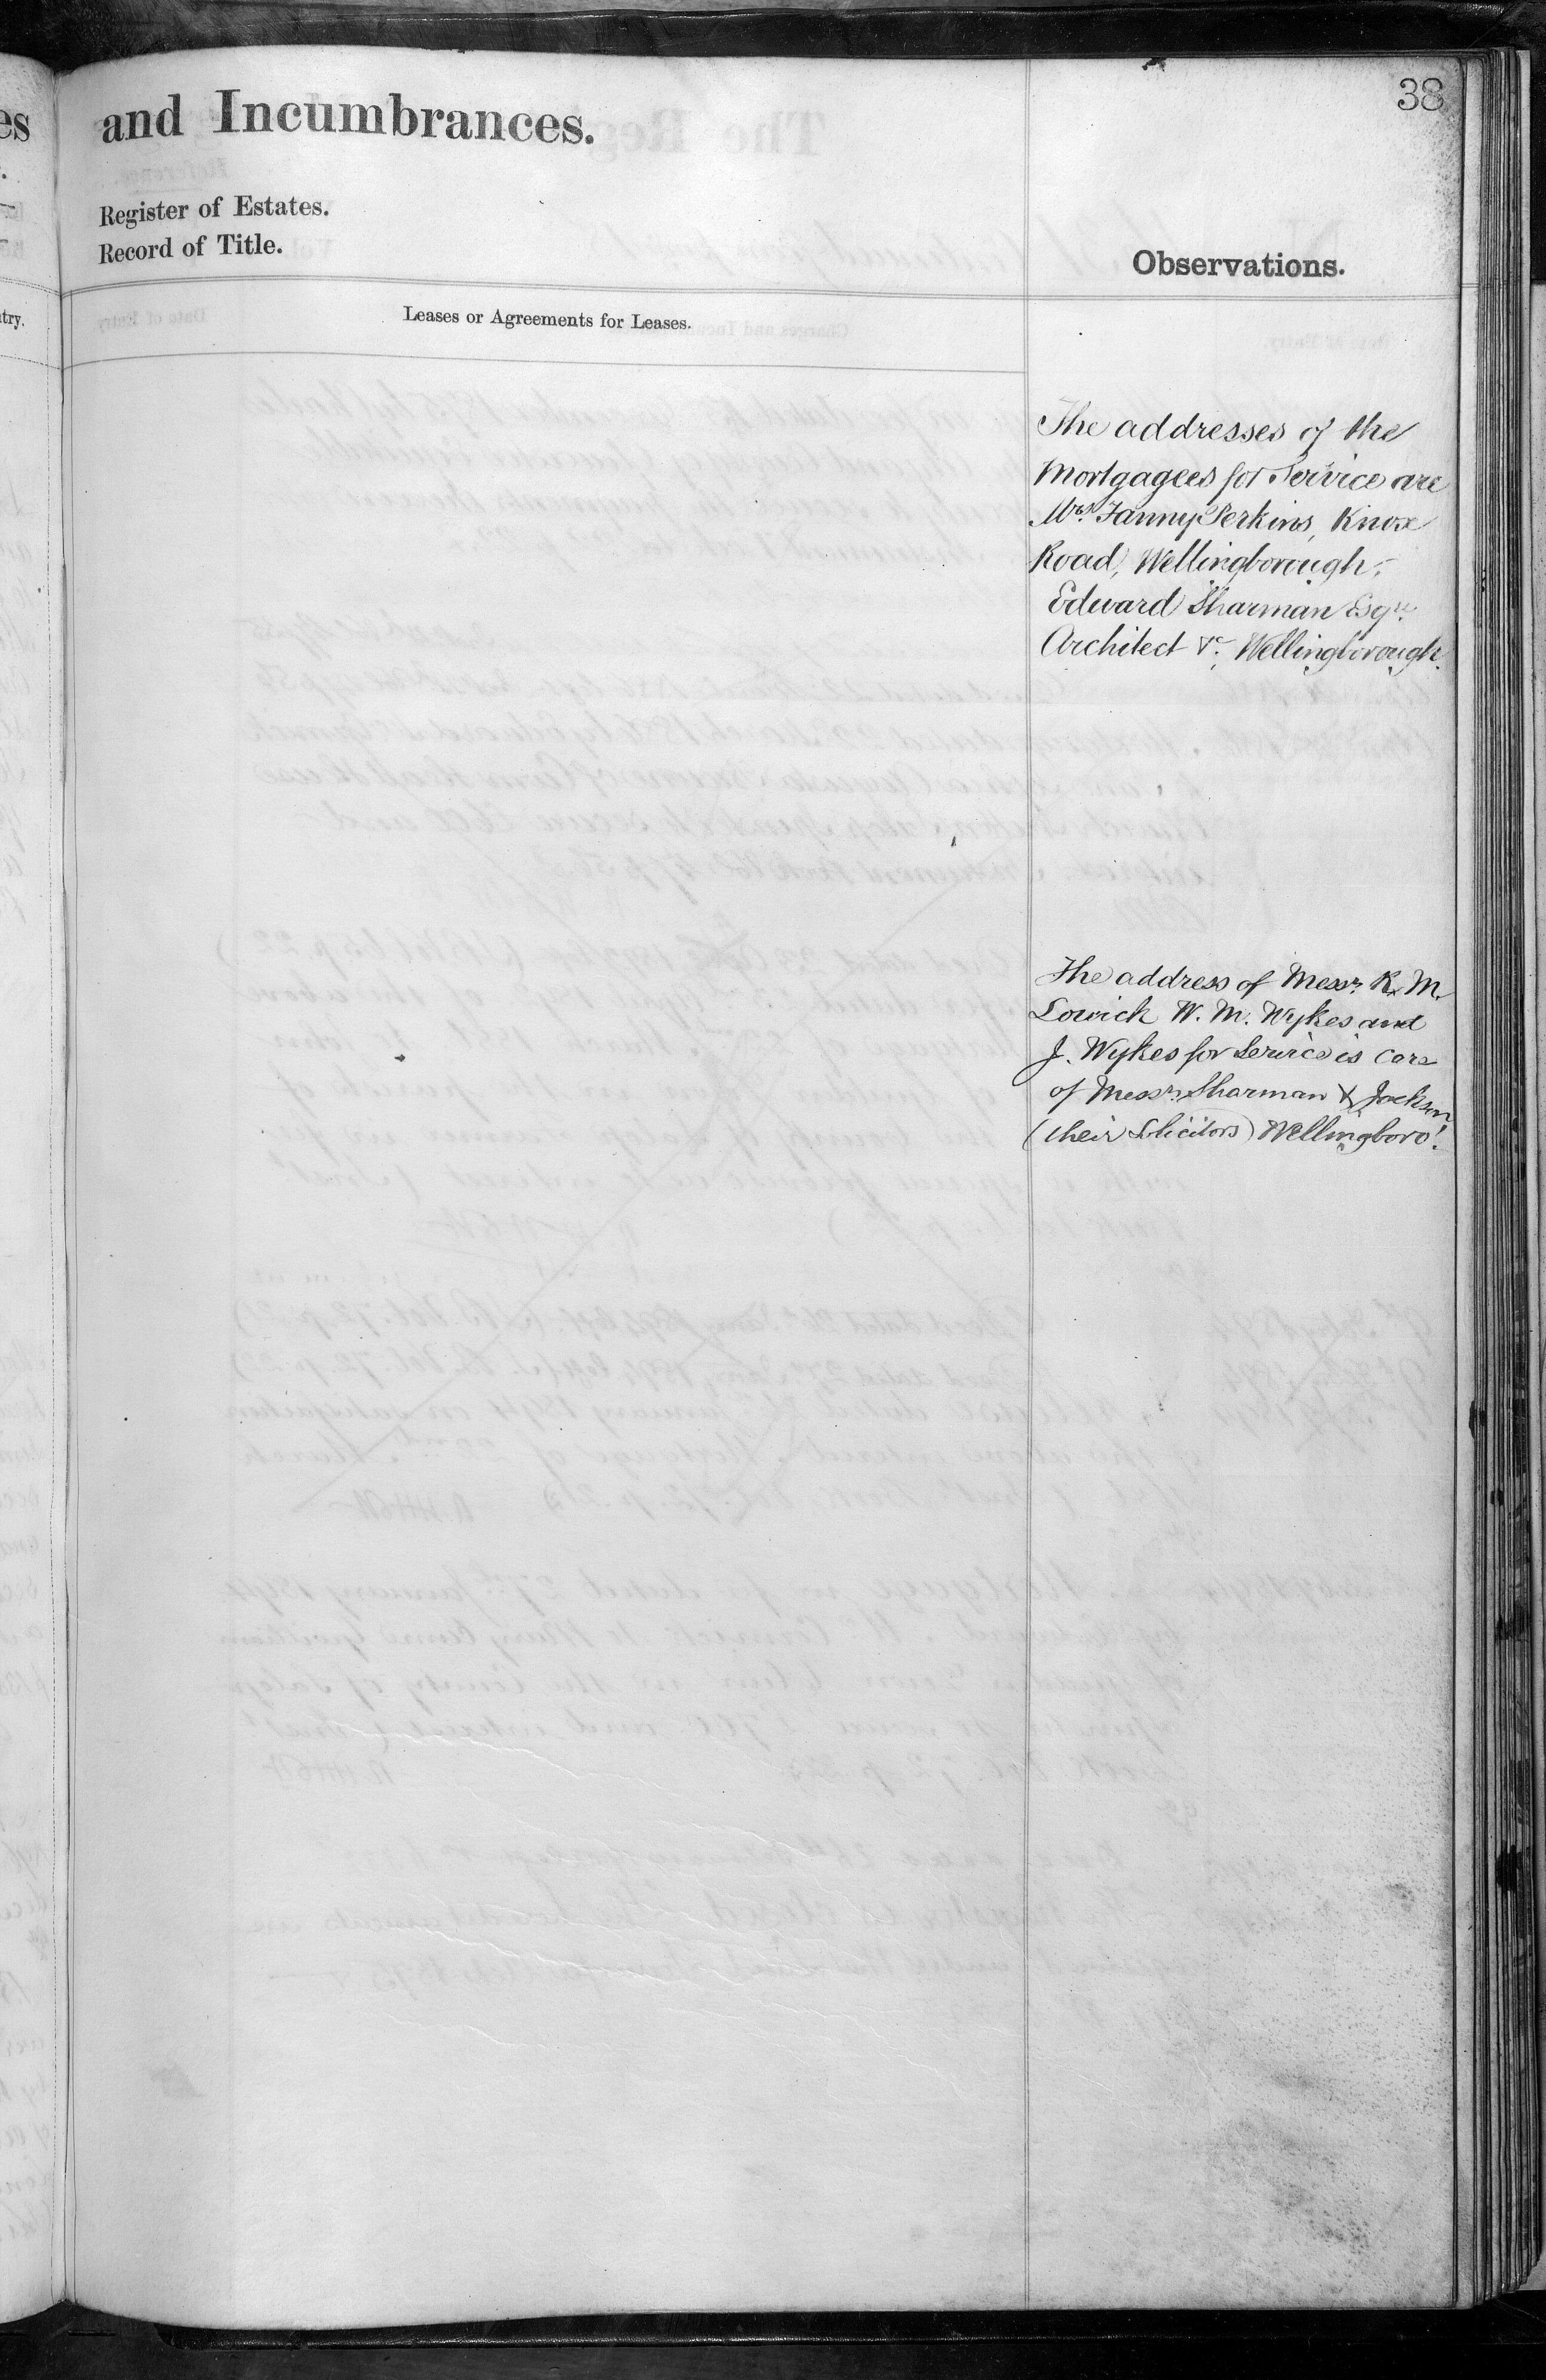 38
and Incumbrances.
Register of Estates.
Record of Title.
Observations.
Leases or Agreements for Leases.
The addresses of the
Mortgagees for Service are
Mrs. Fanny Perkins, Knox
Road, Wellingborough,
Edward Sharman Esqre.
Architect &c. Wellingborough.
The address of Messrs. R. M.
Lowick W. M. Wykes and
J. Wykes for Service is care
of Messrs. Sharman & Jackson
(their Solicitors) Wellingboro'.